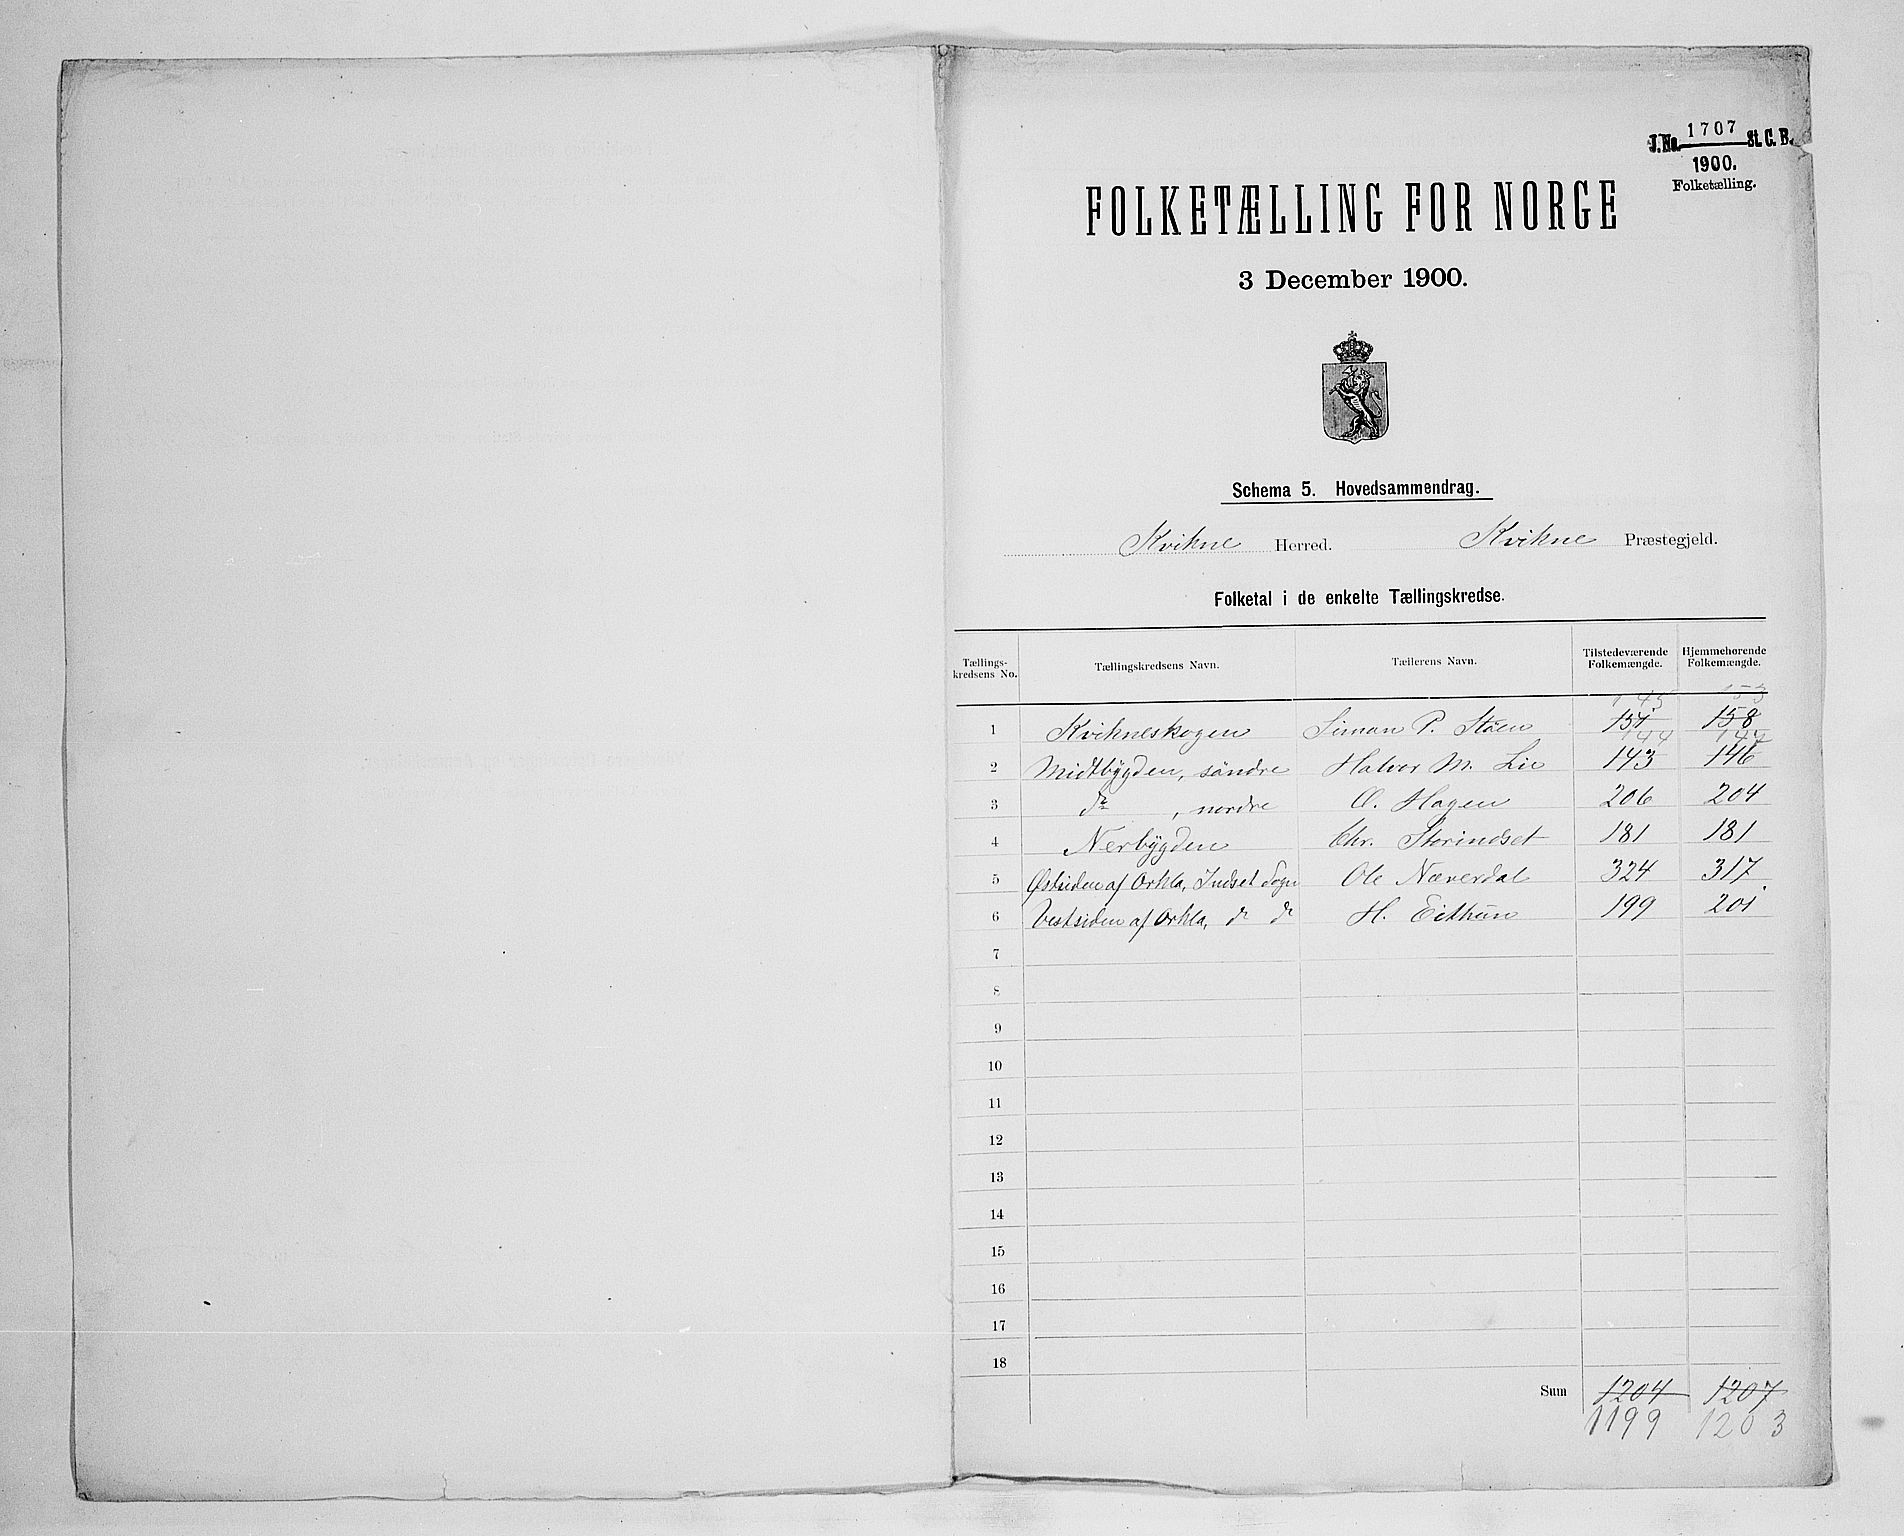 J.No. 1707 St. C. B.
1900.
Folketælling.
FOLKETÆLLING FOR NORGE
3 December 1900.
Schema 5. Hovedsammendrag.
Kvikne Herred. Kvikne Præstegjeld.
Folketal i de enkelte Tællingskredse.
Tællings-kredsens No. Tællingskredsens Navn. Tællerens Navn. Tilstedeværende Folkemængde. Hjemmehørende Folkemængde.
145 153
1 Kvikneskogen Simon P. Stöen 151 158
144 147
2 Midtbygden, söndre Halvor M. Lie 143 146
3 do , nordre O. Hagen 206 204
4 Nerbygden Chr. Storindset 181 181
5 Østsiden af Orkla, Indset Sogn Ole Næverdal 324 317
6 Vestsiden af Orkla, do do H. Eithun 199 201
7
8
9
10
11
12
13
14
15
16
17
18
Sum 1204 1207
1199 1203